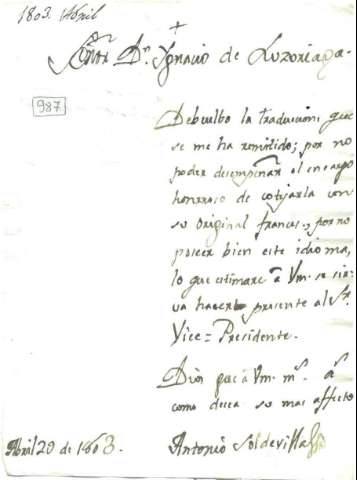 1803. Abril
+
Señor Dn. Ygnacio de Luzoriaga.
987
Debuelbo la traducion; que
se me ha remitido; por no
poder desempeñar el encargo
honrroso de cotejarla con
su original frances, por no
poseer bien este idioma,
lo que estimare a Vm. se sir-
va hacerlo presente al Sr.
Vice=Presidente.
Dios gue a Vm. ms. as.
como desea su mas affecto
Abril 29 de 1803. Antonio Soldevilla